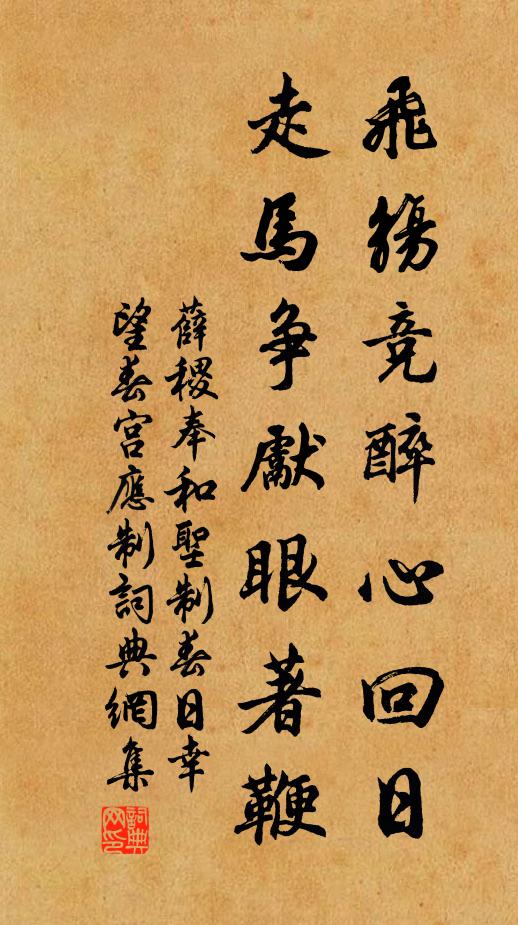 飛觴竞醉心回日
走馬争獻眼著鞭
薛稷奉和聖制春日幸
望春宮應制詞典網集
詞典
网印